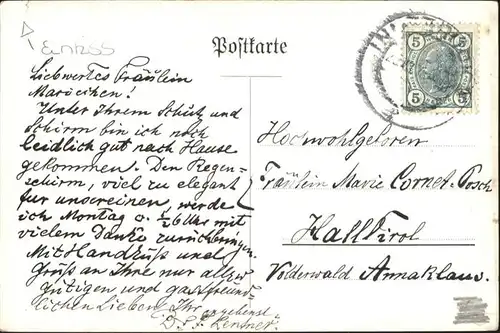 Postkarte
Liebwertes Fräulein
Mariechen!
Unter Ihrem Schutz und
Schirm bin ich noch
leidlich gut nach Hause
gekommen. Den Regen-
schirm, viel zu elegant
für unsereinen, werde
ich Montag o. ½6 Uhr mit
vielem Danke zurückbringen.
Mit Handkuß und
Gruß an Ihre nur allzu
gütigen und gastfreund-
lichen Lieben, Ihr ergebenst
Hochwohlgeboren
Fräulein Marie Cornet-Posch
Hall Tirol
Volderwald Annaklaus.
5 5
5 5